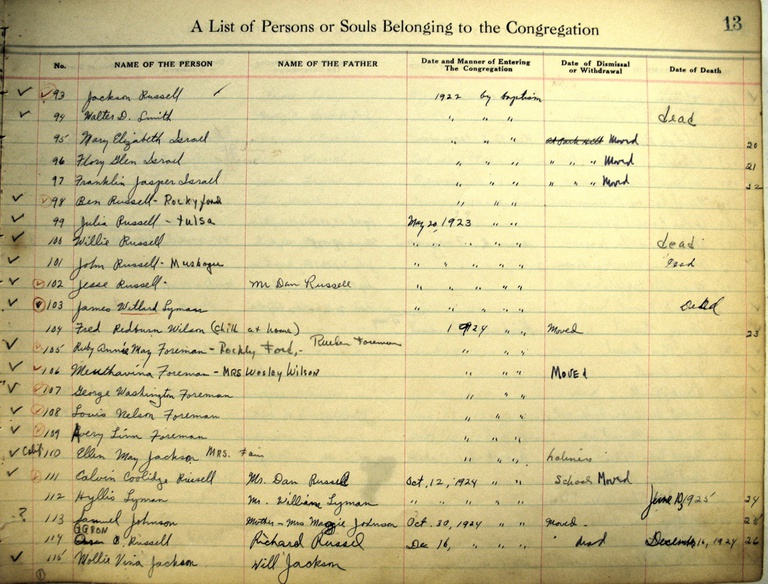 A List of Persons or Souls Belonging to the Congregation 13
No. NAME OF THE PERSON NAME OF THE FATHER Date and Manner of Entering The Congregation Date of Dismissal or Withdrawal Date of Death
✓ ✓ 93 Jackson Russell ✓ 1922 by baptism
✓ 94 Walter D. Smith " " " dead
95 Mary Elizabeth Israel " " " Moved 20
96 Flory Glen Israel " " " " " " Moved 21
97 Franklin Jasper Israel " " " " " " Moved 22
✓ ✓ 98 Ben Russell - Rocky ford " " "
✓ 99 Julia Russell - Tulsa May 20, 1923 " "
✓ 100 Willie Russell " " " " " dead
✓ 101 John Russell - Muskogee " " " " " dead
✓ ✓ 102 Jesse Russell - Mr Dan Russell " " " " "
✓ ✓ 103 James Willard Lyman " " " " " Dead
104 Fred Redburn Wilson (Chilli at home) 1924 " " Moved 23
✓ ✓ 105 Ruby Annie May Foreman - Rockly Ford, - Reuben Foreman " " "
✓ ✓ 106 Foreman - MRS Wesley Wilson " " " MOVEd
✓ ✓ 107 George Washington Foreman " " "
✓ ✓ 108 Louis Nelson Foreman " " "
✓ ✓ 109 Avery Linn Foreman " " "
✓ Calif 110 Ellen May Jackson MRS. Fain " " "
✓ ✓ 111 Calvin Coolidge Russell Mr. Dan Russell Oct, 12, 1924 " " School Moved
112 Hyllis Lyman Mr. William Lyman " " " " " June 13, 1925 24
? 113 Samuel Johnson Mother - Mrs Maggie Johnson Oct. 30, 1924 " " Moved -
114 O Russell Richard Russel Dec 16, " " " " dead December 16, 1924 26
✓ 115 Mollie Vina Jackson Will Jackson